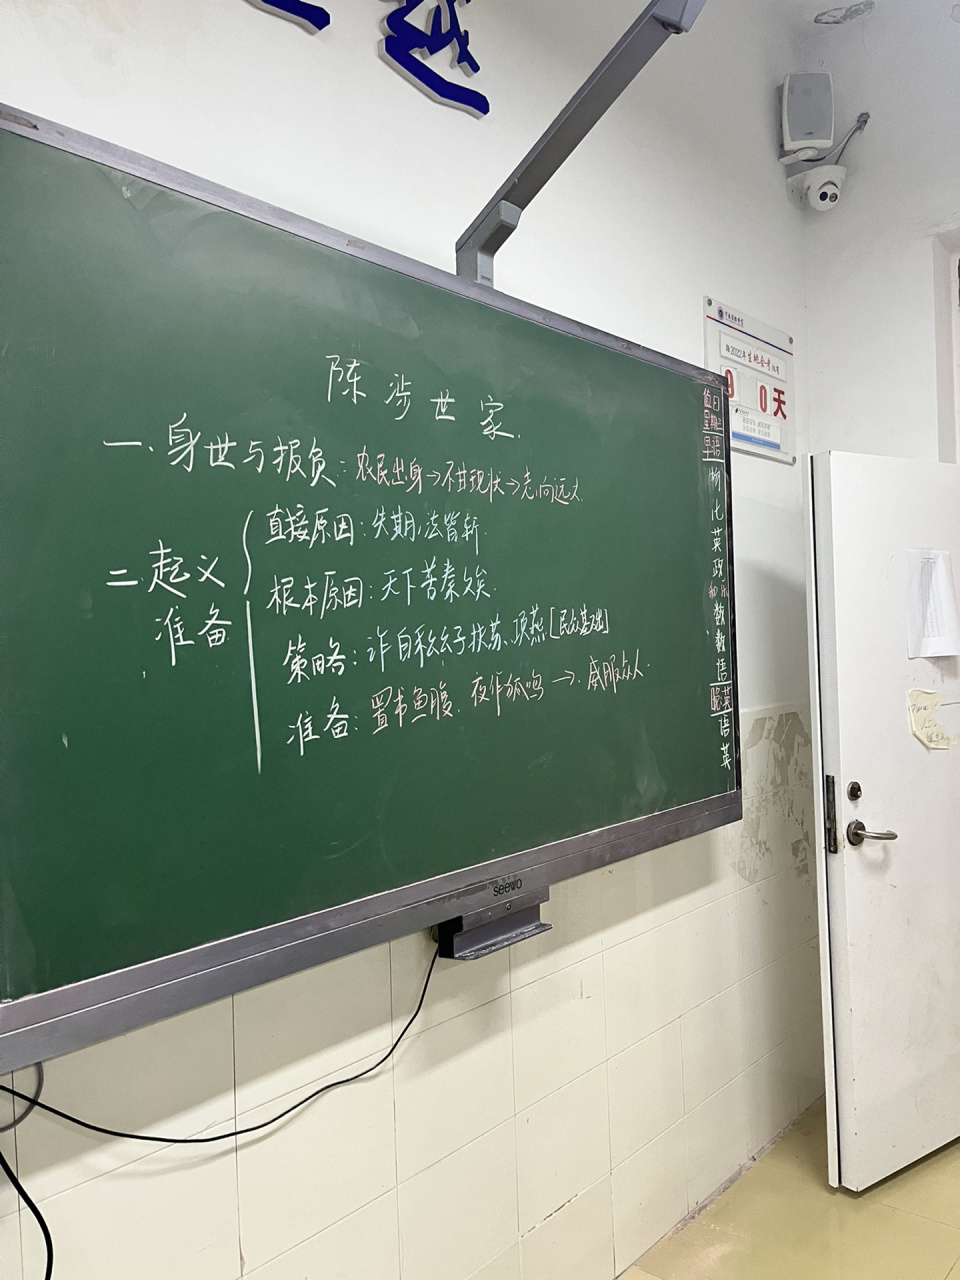 越
陈涉世家
一、身世与报负：农民出身→不甘现状→志向远大
二、起义准备
直接原因：失期，法皆斩
根本原因：天下苦秦久矣
策略：诈自称公子扶苏、项燕[民众基础]
准备：置书鱼腹、夜作狐鸣→威服众人
值日
星期二
早语
物
化
英
政
数
数
语
晚英
语
英
距2022年生地会考还有
90天
seewo